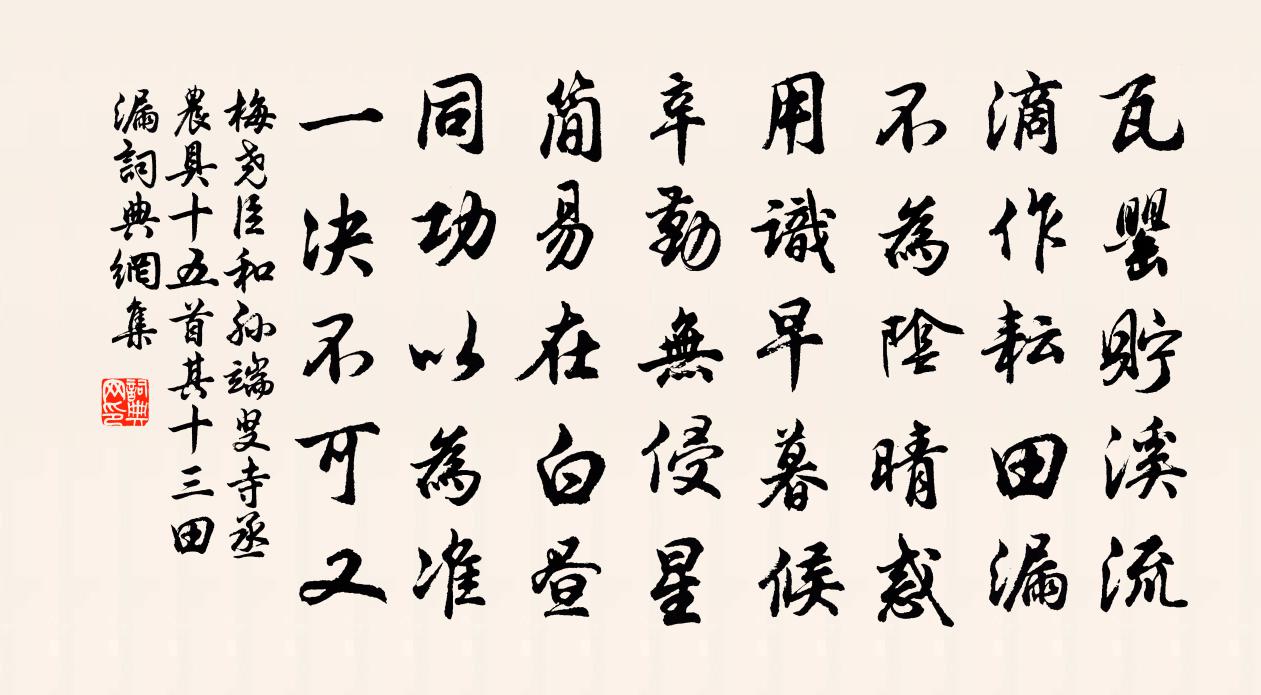 瓦罌貯溪流
滴作耘田漏
不為陰晴惑
用識早暮候
辛勤無侵星
简易在白昼
同功以為准
一決不可又
梅尧臣和孙端叟寺丞
農具十五首其十三田
漏詞典網集
詞典网印